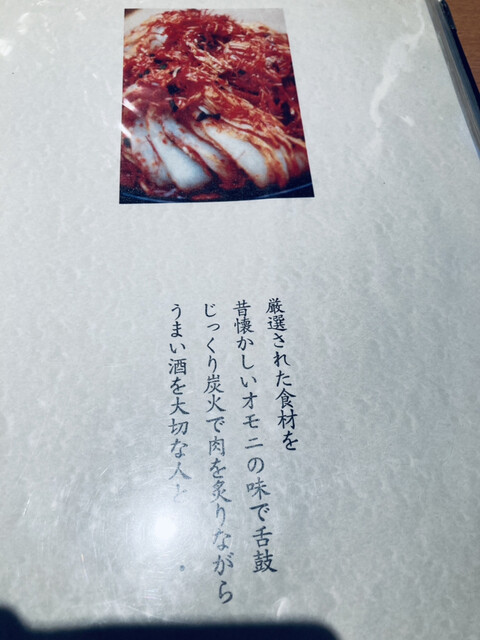 厳選された食材を
昔懐かしいオモニの味で舌鼓
じっくり炭火で肉を炙りながら
うまい酒を大切な人と